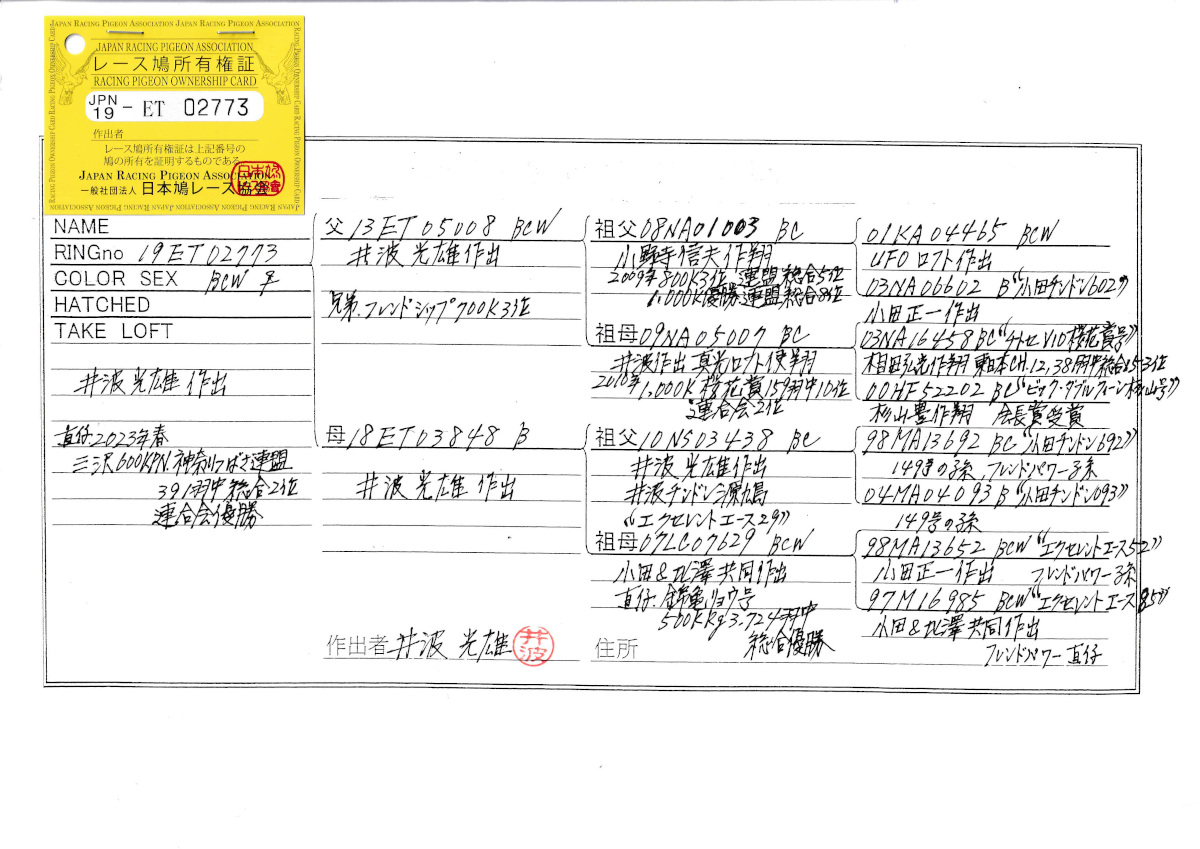 JAPAN RACING PIGEON ASSOCIATION JAPAN RACING PIGEON ASSOCIATION
JAPAN RACING PIGEON ASSOCIATION
レース鳩所有権証
RACING PIGEON OWNERSHIP CARD
JPN
19 - ET 02773
作出者
レース鳩所有権証は上記番号の
鳩の所有を証明するものである。
JAPAN RACING PIGEON ASSOCIATION
一般社団法人 日本鳩レース協会
NAME
RINGno 19ET02773
COLOR SEX BCW ♀
HATCHED
TAKE LOFT
井波光雄 作出
直仔 2023年春
三沢600KPN.神奈川つばさ連盟
391羽中総合2位
連合会優勝
父 13ET05008 BCW
井波光雄作出
兄弟.フレンドシップ700K3位
母 18ET03848 B
井波光雄 作出
作出者 井波 光雄 井波
祖父 08NA01003 BC
小野寺信夫作翔
2009年800K3位 連盟総合5位
1.000K優勝連盟総合8位
祖母 09NA05007 BC
井波作出 真光ロフト使翔
2010年1,000K 桜花賞159羽中10位
連合会2位
祖父 10NS03438 BC
井波光雄作出
井波チンドン源鳩
“エクセレントエース29”
祖母 07LC07629 BCW
小田&北澤共同作出
直仔.錦亀リョウ号
500KRg3.724羽中
総合優勝
住所
01KA04465 BCW
UFOロフト作出
03NA06602 B “小田チンドン602”
小田正一作出
03NA16458 BC “チトセV10桜花賞号”
相田弘光作翔 東日本CH.12,38羽中総合15・3位
00HF52202 BC “ビック・ダブルクィーン杉山号”
杉山豊作翔 会長賞受賞
98MA13692 BC “小田チンドン692”
149号の孫,フレンドパワー子孫
04MA04093 B “小田チンドン093”
149号の孫
98MA13652 BCW “エクセレントエース52”
小田正一作出 フレンドパワー子孫
97M16985 BCW “エクセレントエース85”
小田&北澤共同作出
フレンドパワー直仔